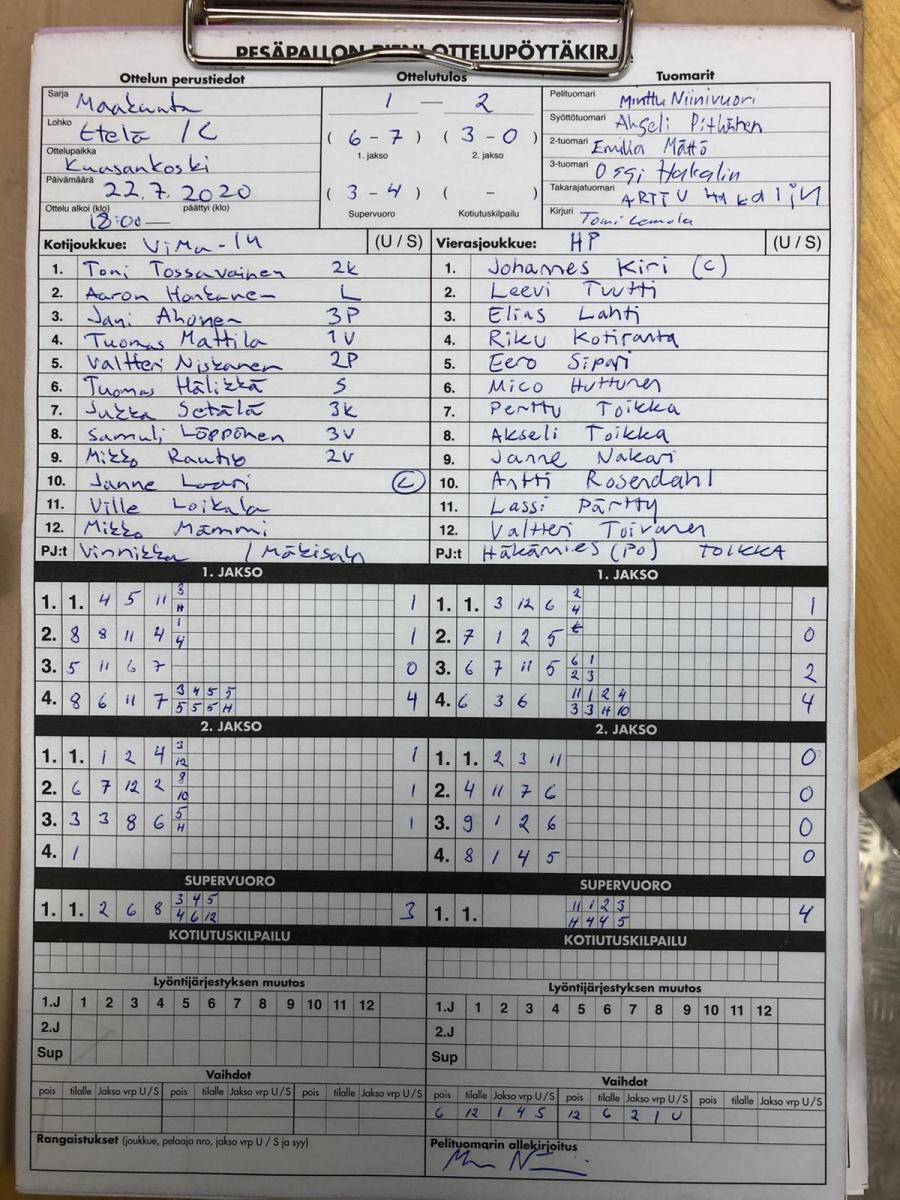 PESÄPALLON PIENI OTTELUPÖYTÄKIRJA
Ottelun perustiedot Ottelutulos Tuomarit
Sarja Maakunta 1 — 2 Pelituomari Minttu Niinivuori
Lohko Etelä / C ( 6 - 7 ) ( 3 - 0 ) Syöttötuomari
1. jakso 2. jakso 2-tuomari Emilia Mättö
Ottelupaikka Kuusankoski 3-tuomari Ossi Hakalin
Päivämäärä 22.7.2020 ( 3 - 4 ) ( - ) Takarajatuomari ARTTU HAKALIN
Ottelu alkoi (klo) 18:00 — päättyi (klo) Supervuoro Kotiutuskilpailu Kirjuri Tomi
Kotijoukkue: ViMa - (U / S) Vierasjoukkue: HP (U / S)
1. Toni Tossavainen 2K 1. Johannes Kiri (C)
2. Aaron Honkanen L 2. Leevi Tuutti
3. Jani Ahonen 3P 3. Elias Lahti
4. Tuomas Mattila 1V 4. Riku Kotiranta
5. Valtteri Niskanen 2P 5. Eero Sipari
6. Tuomas Hälikkä S 6. Mico Huttunen
7. Jukka Setälä 3K 7. Perttu Toikka
8. Samuli Löppönen 3V 8. Akseli Toikka
9. Mikko Rautio 2V 9. Janne Nakari
10. Janne Laari C 10. Antti Rosendahl
11. Ville Loikala 11. Lassi Pärtty
12. Mikko Mämmi 12. Valtteri Toivanen
PJ:t Vinnikka / PJ:t Häkämies (PO) TOIKKA
1. JAKSO 1. JAKSO
1. 1. 4 5 11 3 H 1 1. 1. 3 12 6 2 4 1
2. 8 8 11 4 1 4 1 2. 7 1 2 5 t 0
3. 5 11 6 7 0 3. 6 7 11 5 6 1 2 3 2
4. 8 6 11 7 3 4 5 5 5 5 5 H 4 4. 6 3 6 11 1 2 4 3 3 H 10 4
2. JAKSO 2. JAKSO
1. 1. 1 2 4 3 12 1 1. 1. 2 3 11 0
2. 6 7 12 2 8 10 1 2. 4 11 7 6 0
3. 3 3 8 6 5 H 1 3. 9 1 2 6 0
4. 1 4. 8 1 4 5 0
SUPERVUORO SUPERVUORO
1. 1. 2 6 8 3 4 5 4 6 12 3 1. 1. 11 1 2 3 H 4 4 5 4
KOTIUTUSKILPAILU KOTIUTUSKILPAILU
Lyöntijärjestyksen muutos Lyöntijärjestyksen muutos
1.J 1 2 3 4 5 6 7 8 9 10 11 12 1.J 1 2 3 4 5 6 7 8 9 10 11 12
2.J 2.J
Sup Sup
Vaihdot Vaihdot
pois tilalle Jakso vrp U / S pois tilalle Jakso vrp U / S pois tilalle Jakso vrp U / S pois tilalle Jakso vrp U / S pois tilalle Jakso vrp U / S pois tilalle Jakso vrp U / S
6 12 1 4 S 12 6 2 1 U
Rangaistukset (joukkue, pelaaja nro, jakso vrp U / S ja syy) Pelituomarin allekirjoitus